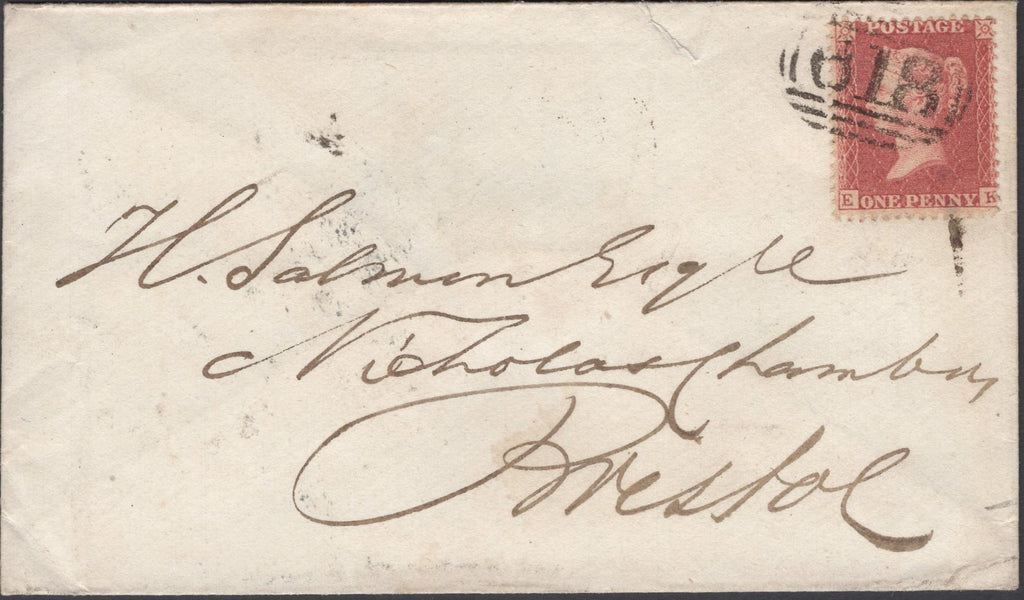 POSTAGE
618
E ONE PENNY K
H. Salmon Esqre
Nicholas Chambers
Bristol